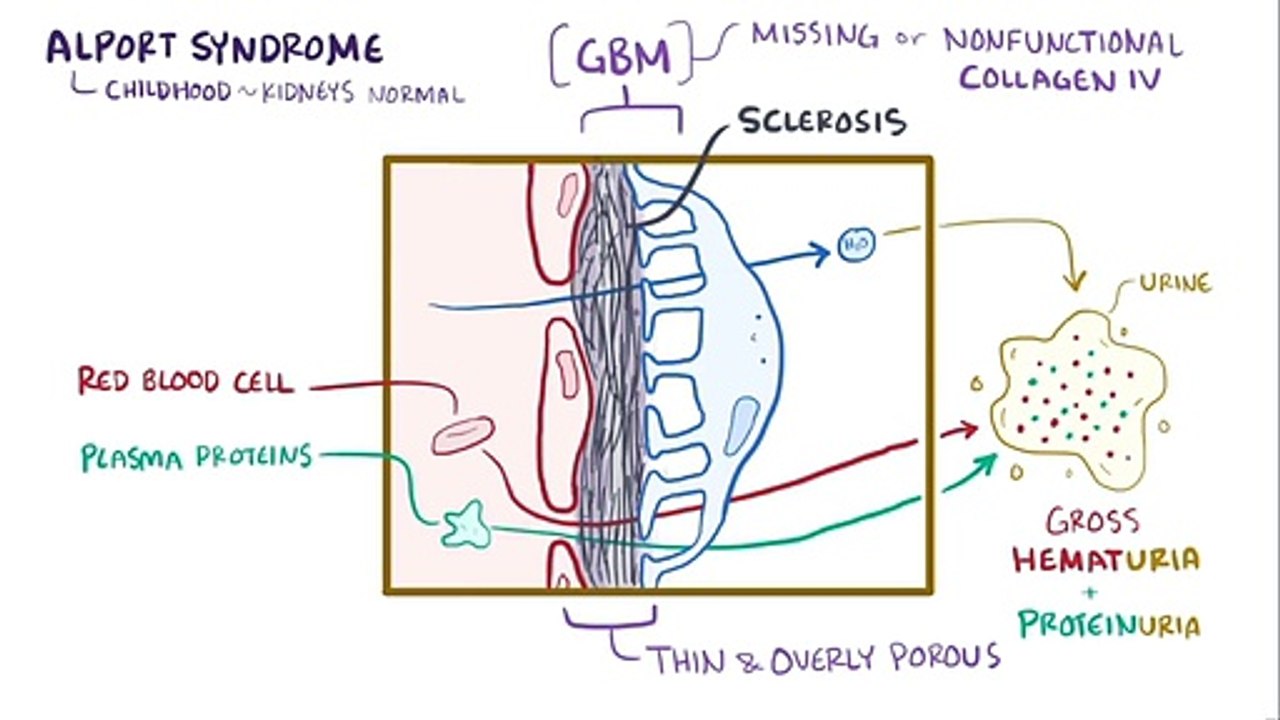 ALPORT SYNDROME
CHILDHOOD ~ KIDNEYS NORMAL
[GBM]
MISSING or NONFUNCTIONAL
COLLAGEN IV
SCLEROSIS
H₂O
URINE
RED BLOOD CELL
PLASMA PROTEINS
GROSS
HEMATURIA
+
PROTEINURIA
THIN & OVERLY POROUS